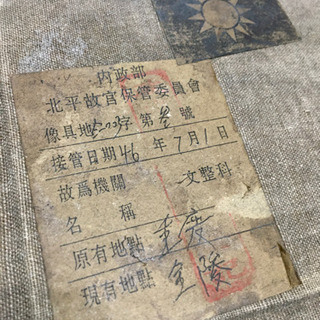 內政部
北平故宮保管委員會
傢具地503字第 號
接管日期46年7月1日
故爲機關 文整科
名稱
原有地點 重慶
現有地點 金陵